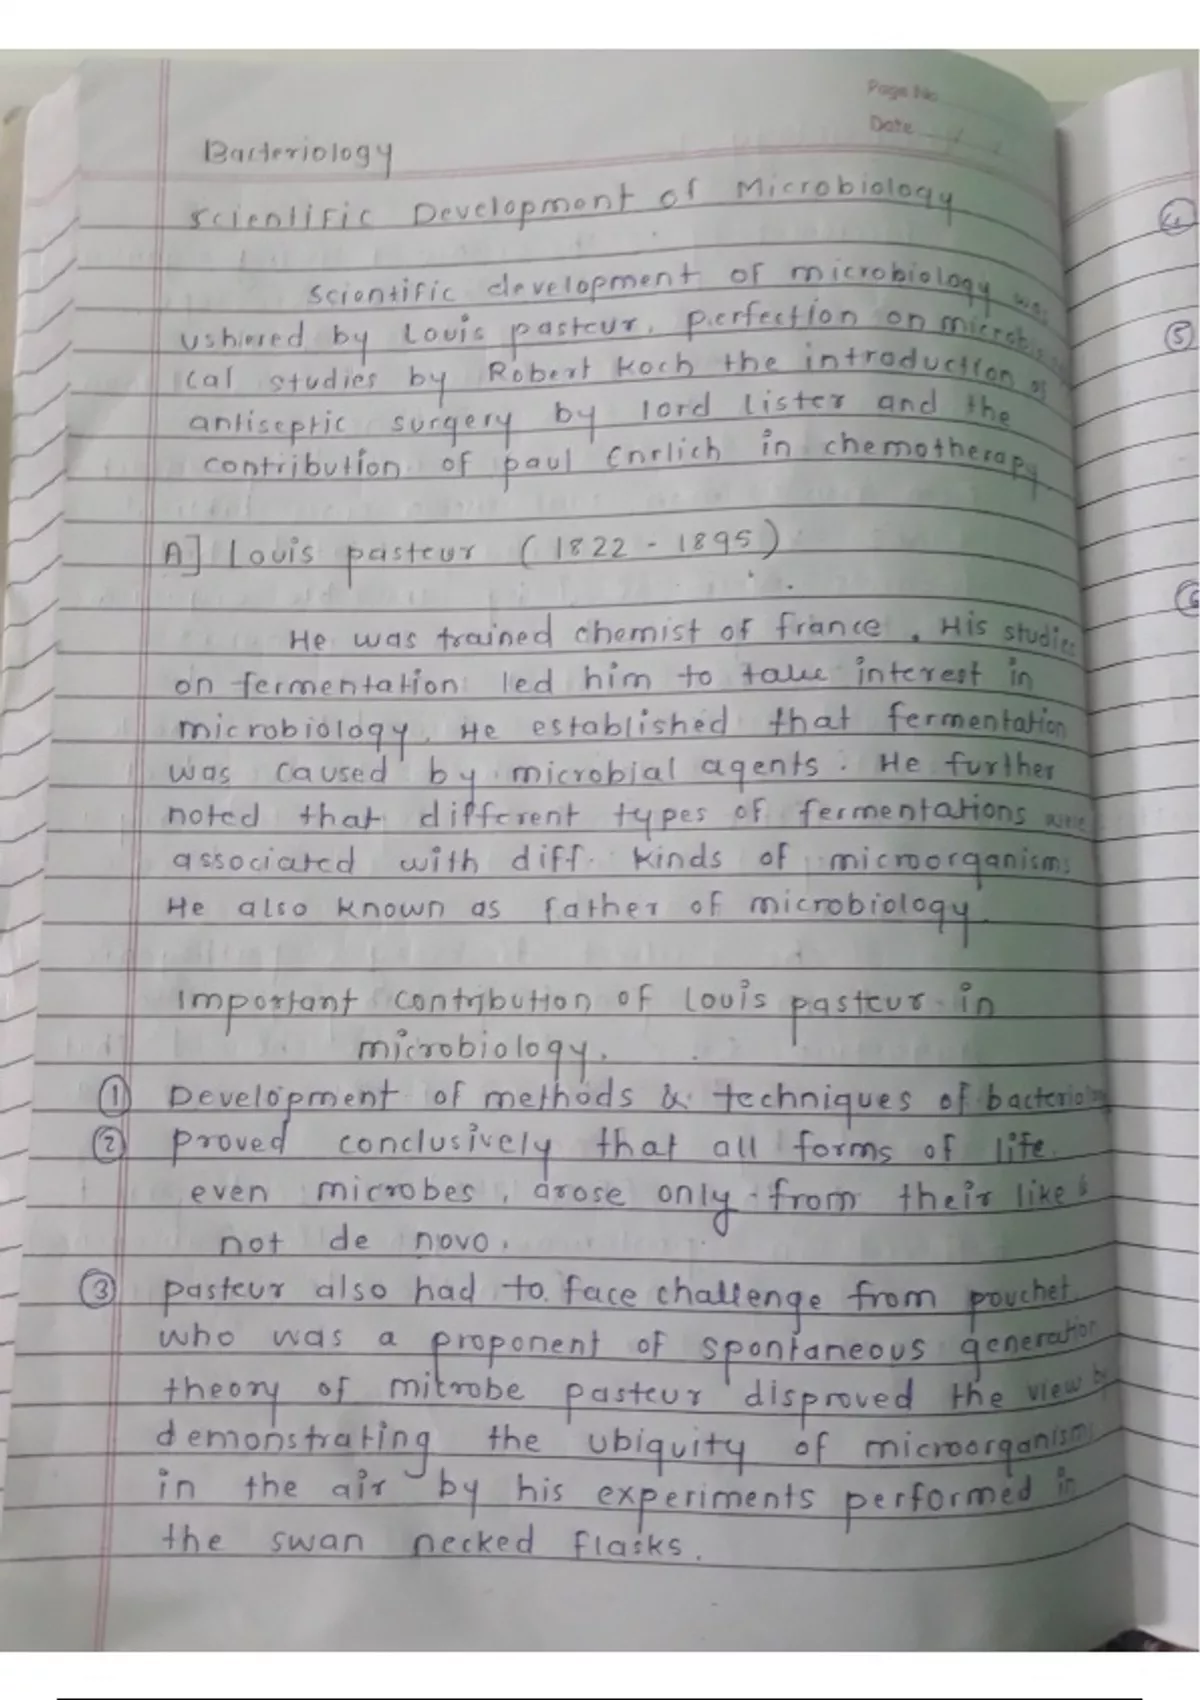 Page No
Date
Bacteriology
Scientific Development of Microbiology
Scientific development of microbiology was
ushered by Louis pasteur, perfection on microbiologi
cal studies by Robert Koch the introduction of
antiseptic surgery by lord lister and the
contribution of paul Enrlich in chemotherapy
A] Louis pasteur (1822 - 1895)
He was trained chemist of france. His studies
on fermentation led him to take interest in
microbiology. He established that fermentation
was caused by microbial agents. He further
noted that different types of fermentations were
associated with diff. kinds of microorganisms
He also known as father of microbiology.
Important contribution of Louis pasteur in
microbiology.
① Development of methods & techniques of bacteriology
② proved conclusively that all forms of life
even microbes, arose only from their like &
not de novo.
③ pasteur also had to face challenge from pouchet
who was a proponent of spontaneous generation
theory of mitrobe pasteur disproved the view by
demonstrating the ubiquity of microorganisms
in the air by his experiments performed in
the swan necked flasks.
4
⑤